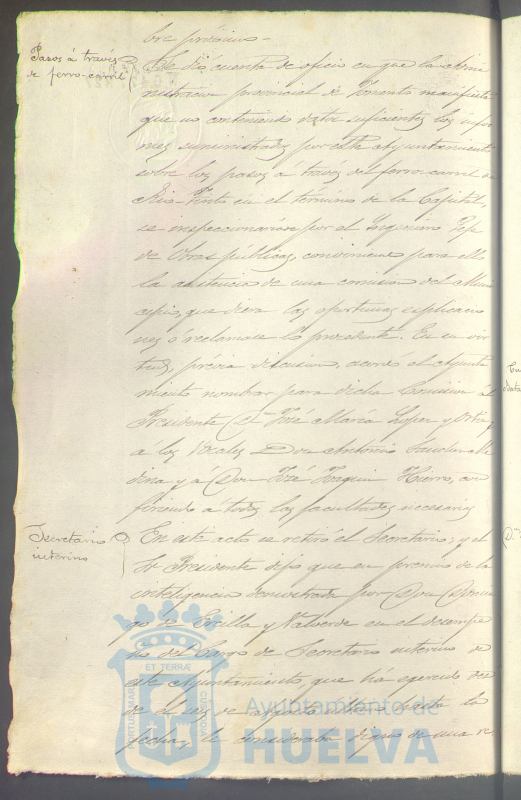 bre próximo.-
Pasos á través
de ferro-carril
Se dió cuenta de oficio en que la admi
nistracion provincial de Fomento manifiesta
que no conteniendo datos suficientes los infor
mes suministrados por este Ayuntamiento
sobre los pasos á través del ferro-carril de
Rio-Tinto en el término de la Capital,
se inspeccionarán por el Ingeniero Jefe
de Obras públicas, conviniendo para ello
la asistencia de una comision del Muni
cipio, que diera las oportunas explicacio
nes ó reclamase lo procedente. En su vir
tud, prévia discusion, acordó el Ayunta
miento nombrar para dicha Comision al
Presidente Dn. José María Lopez y Ortiz,
á los Vocales Don Antonio
y á Don José Joaquin Hierro, con
firiendo á todos las facultades necesarias
Secretario
interino
En este acto se retiró el Secretario; y el
Sr Presidente dijo que en premio de la
inteligencia demostrada por Don Domin
go de Ercilla y Valverde en el desempe
ño del cargo de Secretario interino de
este Ayuntamiento, que há ejercido des
de el mes de Agosto hasta la
fecha, le consideraba digno de una re
ET TERRÆ
CUSTODIA
PORTUS MARIS
Ayuntamiento de
HUELVA